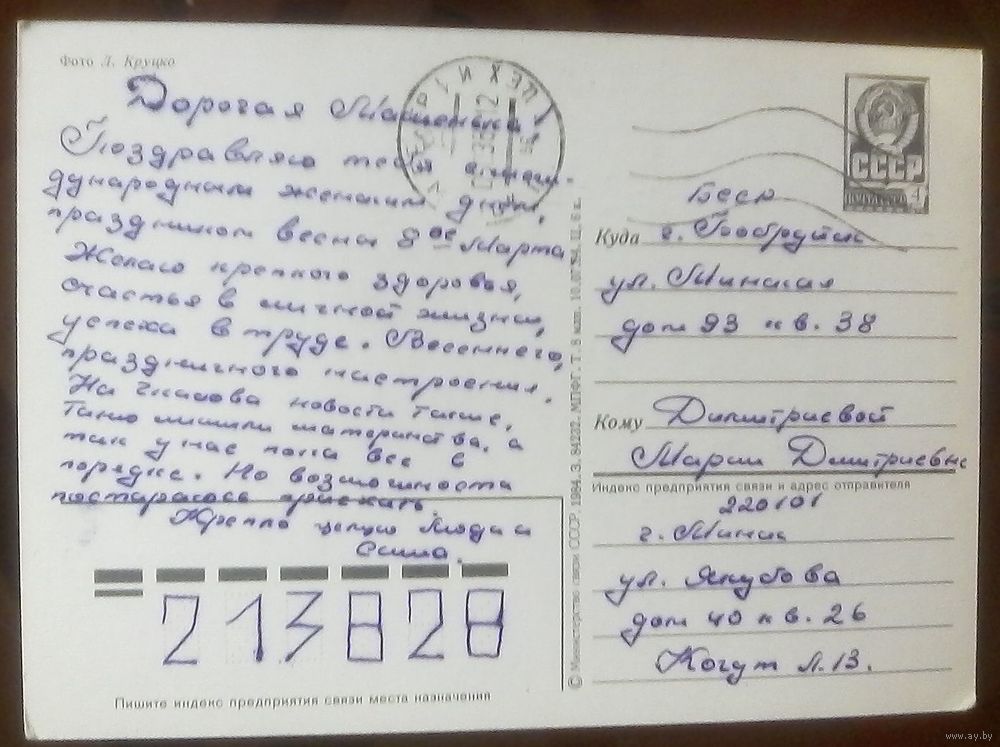 Фото Л. Круцко
Дорогая Машенька!
Поздравляю тебя с меж-
дународным женским днём,
праздником весны 8ое Марта
Желаю крепкого здоровья,
счастья в личной жизни,
успеха в труде. Весеннего,
праздничного настроения.
новости такие,
Таню лишили материнства, а
так у нас пока все в
порядке. По возможности
постараюсь приехать.
Крепко целую Люда и
Саша.
213828
Пишите индекс предприятия связи места назначения
© Министерство связи СССР. 1984. З. 84232. МПФГ. Т. 8 млн. 10.07.84. Ц. 6 к.
СССР
4
Бсср
Куда г. Бобруйск
ул. Минская
дом 93 кв. 38
Кому Димитриевой
Марии Димитриевне
Индекс предприятия связи и адрес отправителя
220101
г. Минск
ул. Якубова
дом 40 кв. 26
Когут Л. В.
www.ay.by